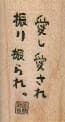 愛し愛され
振り振られ。